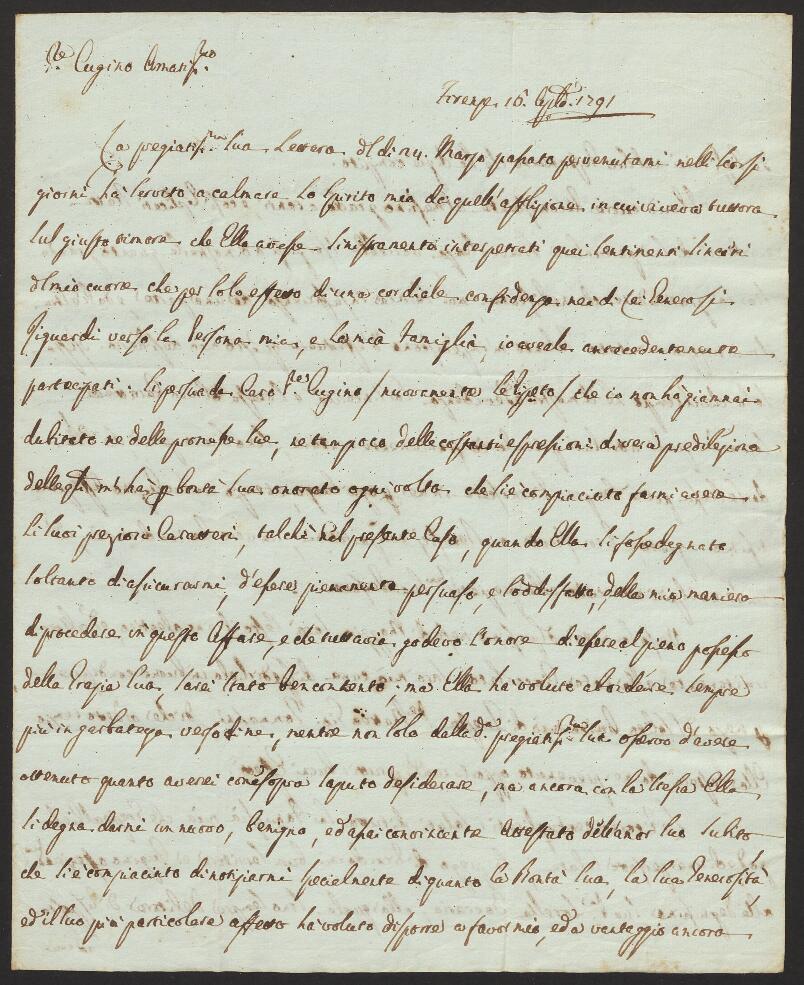 Sre. Cugino Amatissmo.
Firenze 16. 1791
La pregiatissma sua Lettera del di 24. Marzo passato pervenutami nelli scorsi
giorni ha servito a calmare lo spirito mio da quell'afflizione in cui viveva tuttora
sul giusto timore che Ella avesse sinistramente interpetrati quei sentimenti sinceri
del mio cuore che per solo effetto di una cordiale confidenza nei di Lei Generosi
riguardi verso la Persona mia, e la mia Famiglia, io aveale antecedentemente
partecipati. Si persuada Caro Sre. Cugino /nuovamente le ripeto/ che io non ho giammai
dubitato ne delle promesse sue, ne tampoco delle costanti espressioni di vera predilezione
delle mi ha p bontà sua onorato ogni volta che si è compiaciuto farmi avere
li suoi preziosi Caratteri, talchè nel presente Caso, quando Ella si fosse degnato
soltanto di assicurarmi, d'essere pienamente persuaso, e soddisfatto, della mia maniera
di procedere in questo Affare, e che tuttavia godevo l'onore di essere al pieno possesso
della Grazia sua, sarei stato ben contento; ma Ella ha voluto abondare sempre
più in garbatezza verso di me, mentre non solo dalla da. pregiatissma sua osservo d'avere
ottenuto quanto averei come sopra saputo desiderare, ma ancora con la stessa Ella
si degna darmi un nuovo, benigno, ed assai convincente attestato dell'amor suo subito
che si è compiacinto di notiziarmi specialmente di quanto la Bontà sua, la sua Generosità,
ed il suo più particolare affetto ha voluto disporre a favor mio, ed a vantaggio ancora